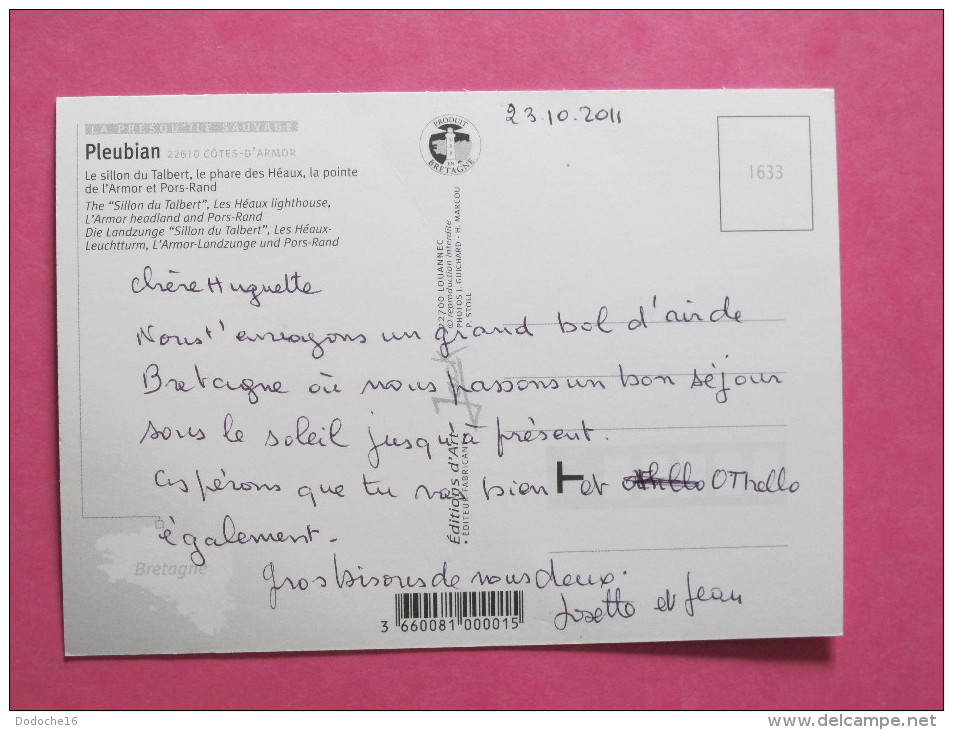 LA PRESQU'ÎLE SAUVAGE
Pleubian 22610 CÔTES-D'ARMOR
Le sillon du Talbert, le phare des Héaux, la pointe
de l'Armor et Pors-Rand
The "Sillon du Talbert", Les Héaux lighthouse,
L'Armor headland and Pors-Rand
Die Landzunge "Sillon du Talbert", Les Héaux-
Leuchtturm, L'Armor-Landzunge und Pors-Rand
PRODUIT EN BRETAGNE
23.10.2011
1633
22700 LOUANNEC
© reproduction interdite
PHOTOS J. GUICHARD - H. MARCOU
P. STOLL
Éditions d'Art
ÉDITEUR FABRICANT
chère Huguette
Nous t'envoyons un grand bol d'air de
Bretagne où nous passons un bon séjour
sous le soleil jusqu'à présent.
Espérons que tu vas bien et OThello
également.
gros bisous de nous deux.
Josette et Jean
Bretagne
3 660081 000015
Dodoche16
www.delcampe.net